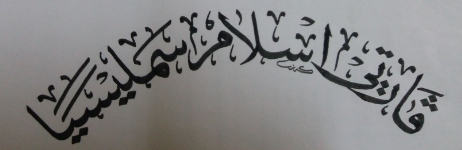 ڤارتي اسلام سمليسيا